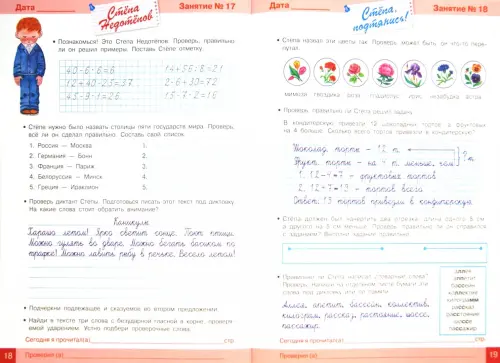 Дата
Стёпа Недотёпов
Занятие № 17
Познакомься! Это Стёпа Недотёпов. Проверь, правильно
ли он решил примеры. Поставь Стёпе отметку.
40-6-6=6
14+56:8=21
12+40-25=37
2·6+30=72
45-3-1=26
15-7·2=16
Стёпе нужно было назвать столицы пяти государств мира. Проверь,
всё ли он сделал правильно. Составь свой список.
1. Россия — Москва
1.
2. Германия — Бонн
2.
3. Франция — Париж
3.
4. Белоруссия — Минск
4.
5. Греция — Ираклион
5.
Проверь диктант Стёпы. Подготовься писать этот текст под диктовку.
На какие слова стоит обратить внимание?
Каникулы
Харашо летом! Ярко светит сонце. Поют птицы.
Можно гулять во дворе. Можно бегать басиком по
трафке! Можно лавить рыбу в речьке. Весело летом!
Подчеркни подлежащее и сказуемое во втором предложении.
Найди в тексте три слова с безударной гласной в корне, проверяемой
ударением. Устно подбери проверочные слова.
Сегодня я прочитал(а)
стр.
18
Проверил (а)
Дата
Стёпа, подтянись!
Занятие № 18
Стёпа назвал эти цветы так. Проверь, может быть, он что-то перепутал.
мимоза
гвоздика
роза
гладиолус
ирис
незабудка
астра
Проверь, правильно ли Стёпа решил задачу.
В кондитерскую привезли 12 шоколадных тортов, а фруктовых
на 4 больше. Сколько всего тортов привезли в кондитерскую?
Шоколад. торты — 12 т.
Фрукт. торты — на 4 т. меньше, чем
1. 12-4=7 - фруктовых тортов
2. 12+7=13 - тортов всего
Ответ: 13 тортов привезли в кондитерскую
Стёпа должен был начертить два отрезка, длина одного 8 см,
а другого на 5 см меньше. Проверь, правильно ли он справился
с заданием? Выполни задание правильно.
Правильно ли Стёпа написал словарные слова?
Аллея, апетит, бассеин, коллектив,
килограм, рассказ, растояние, шоссе,
пассажир.
аллея
аппетит
бассейн
коллектив
килограмм
рассказ
расстояние
шоссе
пассажир
Сегодня я прочитал(а)
стр.
Проверил (а)
19